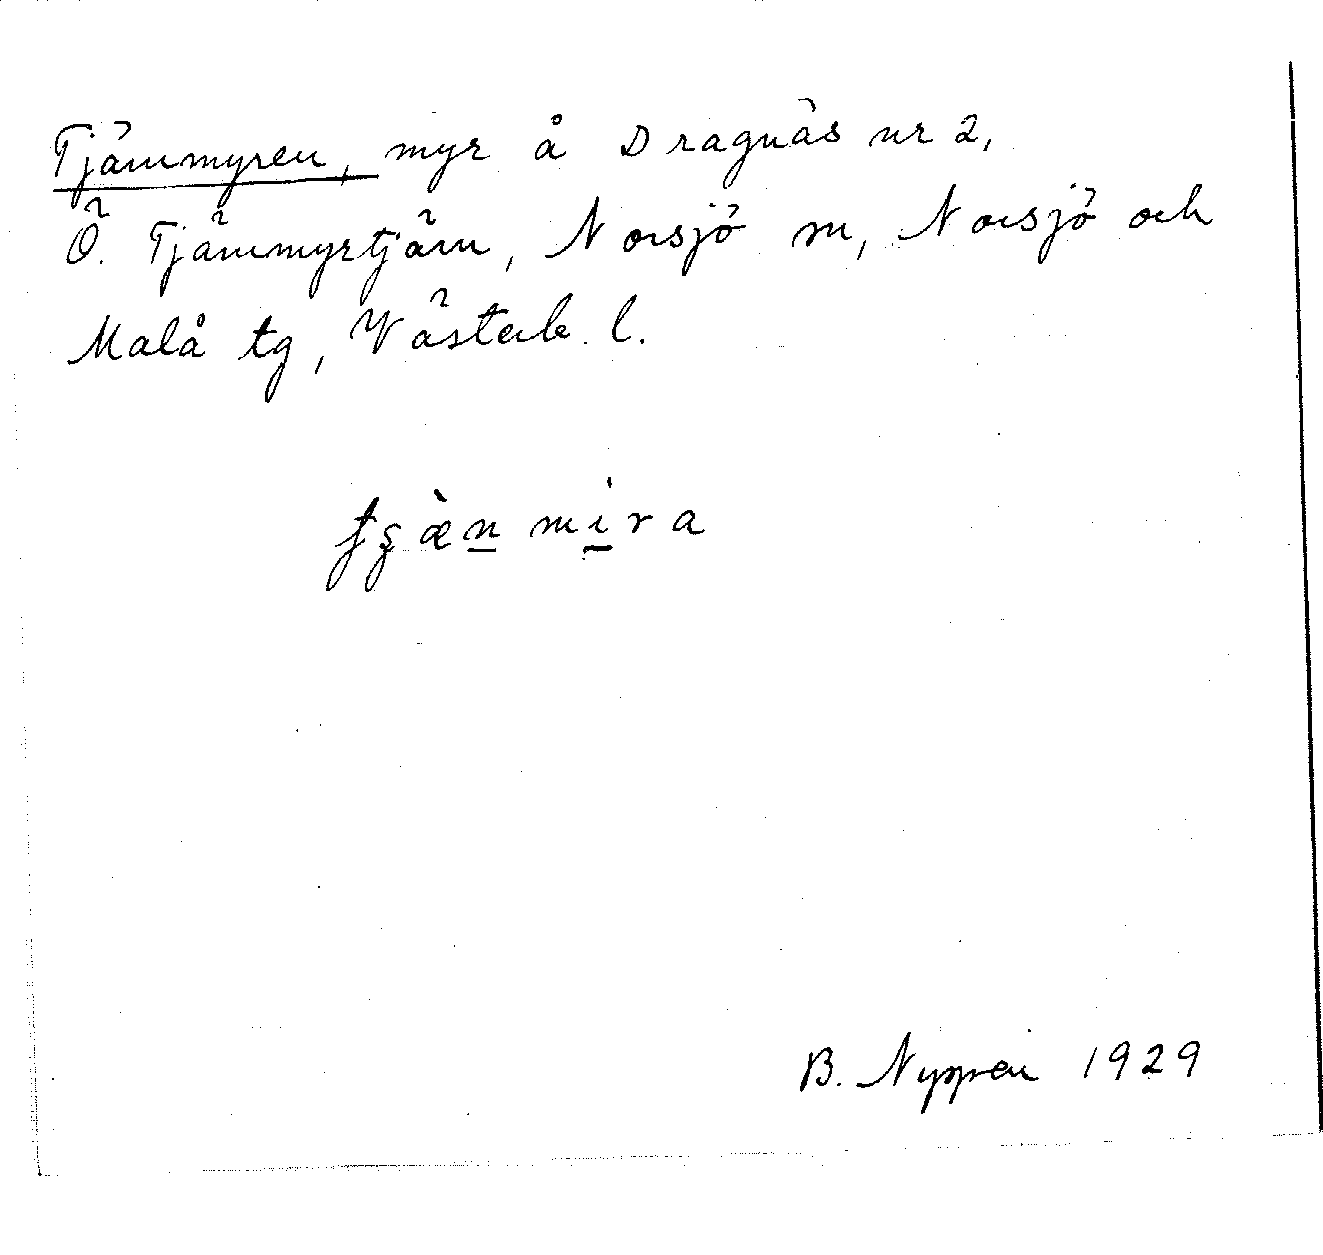 Tjärnmyren, myr å Dragnäs nr 2,
Ö. Tjärnmyrtjärn, Norsjö sn, Norsjö och
Malå tg, Västerb. l.
tʂæ̀n mi̠ra
B. Nyppen 1929